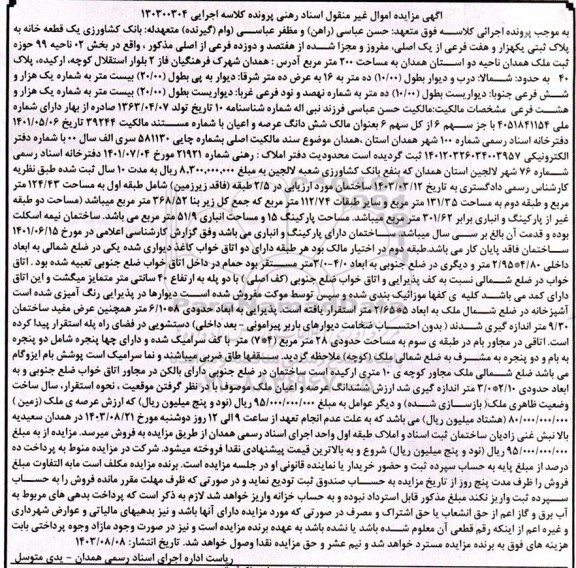 آگهی مزایده اموال غیر منقول اسناد رهنی پرونده کلاسه اجرایی ۱۳۰۳۰۰۳۰۴
به موجب پرونده اجرائی کلاسه فوق متعهد: حسن عباسی (راهن) و مظفر عباسی (وام گیرنده) متعهدله: بانک کشاورزی یک قطعه خانه به
پلاک ثبتی یکهزار و هفت فرعی از یک اصلی، مفروز و مجزا شده از هفتصد و دوزده فرعی از اصلی مذکور، واقع در بخش ۰۲ ناحیه ۹۹ حوزه
ثبت ملک همدان ناحیه دو استان همدان به مساحت ۲۰۰ متر مربع آدرس: همدان شهرک فرهنگیان فاز ۲ بلوار استقلال کوچه، ارکیده، پلاک
۴۰ به حدود: شمالا: درب و دیوار بطول (۱۰/۰۰) ده متر به ۱۶ به عرض ده متر شرقا: دیوار به پی بطول (۲۰/۰۰) بیست متر به شماره یک هزار و
شش فرعی جنوبا: دیواریست بطول (۱۰/۰۰) ده متر به شماره نهصد و نود فرعی غربا: دیواریست بطول (۲۰/۰۰) بیست متر به شماره یک هزار و
هشت فرعی مشخصات مالکیت: مالکیت حسن عباسی فرزند نبی اله شماره شناسنامه ۱۰ تاریخ تولد ۱۳۶۳/۰۴/۰۷ صادره از بهار دارای شماره
ملی ۴۰۵۱۸۴۱۱۵۴ با جز سهم ۶ از کل سهم ۶ بعنوان مالک شش دانگ عرصه و اعیان با شماره مستند مالکیت ۳۹۲۴۴ تاریخ ۱۴۰۱/۰۵/۰۶
دفترخانه اسناد رسمی شماره ۱۰۰ شهر همدان استان همدان، موضوع سند مالکیت اصلی بشماره چاپی ۵۸۱۱۳۰ سری الف سال ۰۰ با شماره دفتر
الکترونیکی ۱۴۰۱۲۰۳۲۶۰۳۴۰۰۳۹۵۷ ثبت گردیده است محدودیت دفتر املاک: رهنی شماره ۲۱۹۲۱ مورخ ۱۴۰۱/۰۷/۰۴ دفترخانه اسناد رسمی
شماره ۷۶ شهر لالجین استان همدان که بنفع بانک کشاورزی شعبه لالجین به مبلغ ۸,۳۰۰,۰۰۰,۰۰۰ ریال به مدت ۱۰ سال ثبت شده طبق نظریه
کارشناس رسمی دادگستری به تاریخ ۱۴۰۳/۰۳/۱۲ ساختمان مورد ارزیابی در ۲/۵ طبقه (فاقد زیرزمین) شامل طبقه اول به مساحت ۱۲۴/۴۳ متر
مربع و طبقه دوم به مساحت ۱۳۱/۳۵ متر مربع و سایر طبقات ۱۱۲/۷۴ متر مربع که جمع کل زیر بنا ۳۶۸/۵۲ متر مربع میباشد (مساحت دو طبقه
غیر از پارکینگ و انباری برابر ۳۰۱/۶۲ متر مربع میباشد. مساحت پارکینگ ۱۵ و مساحت انباری ۵۱/۹ متر مربع می باشد. ساختمان نیمه اسکلت
بوده و قدمت آن بالغ بر سی سال میباشد ساختمان دارای پارکینگ و انباری می باشد وفق گزارش کارشناسی اعلامی در مورخ ۱۴۰۱/۰۶/۱۵
ساختمان فاقد پایان کار می باشد. طبقه دوم در اختیار مالک بود هر طبقه دارای دو اتاق خواب کاغذ دیواری شده یکی در ضلع شمالی به ابعاد
داخلی ۴/۸۰*۲/۹۵ متر و دیگری در ضلع جنوبی به ابعاد ۴/۰*۳/۰ متر مستقر بود حمام در داخل اتاق خواب ضلع جنوبی تعبیه شده بود. اتاق
خواب در ضلع شمالی نسبت به کف پذیرایی و اتاق خواب ضلع جنوبی (کف اصلی) با دو پله به ارتفاع ۴۰ سانتی متر متمایز میگشت و این اتاق
دارای کمد می باشد کلیه ی کفها موزائیک بندی شده و سپس توسط موکت مفروش شده است دیوارها در پذیرایی رنگ آمیزی شده است
آشپزخانه در ضلع شمال ملک به ابعاد ۵*۲/۶۵ متر استقرار یافته است. پذیرایی به ابعاد حدودی ۸*۶/۱۰ متر همچنین عرض مفید ساختمان
۹/۳۰ متر اندازه گیری شدند (بدون احتساب ضخامت دیوارهای باربر پیرامونی - بعد داخلی) دستشویی در فضای راه پله استقرار پیدا کرده
است. اتاقی در مجاور بام در طبقه ی سوم به مساحت حدودی ۲۸ متر مربع (۴*۷) متر با کف سرامیک شده و دارای چها پنجره شامل دو پنجره
به بام و دو پنجره به مشرف به ضلع شمالی ملک (کوچه) ملاحظه گردید. سقفها طاق ضربی میباشند و نما سرامیک است پوشش بام ایزوگام
می باشد ضلع شمالی ملک مجاور کوچه ی ۱۰ متری ارکیده است ساختمان در ضلع جنوبی دارای بالکن در مجاور اتاق خواب ضلع جنوبی و به
ابعاد حدودی ۲/۱۰*۳/۰ متر اندازه گیری شد ارزش ششدانگ عرصه و اعیان ملک موصوف با در نظر گرفتن موقعیت، نحوه استقرار، سال ساخت
وضعیت ظاهری ملک (بازسازی شده) و دیگر عوامل به مبلغ ۹۵/۰۰۰/۰۰۰/۰۰۰ ریال (نود و پنج میلیون ریال) که ارزش عرصه ی ملک (زمین)
۸۰/۰۰۰/۰۰۰/۰۰۰ (هشتاد میلیون ریال) می باشد که به علت عدم انجام تعهد از ساعت ۹ الی ۱۲ روز دوشنبه مورخ ۱۴۰۳/۰۸/۲۱ در همدان سعیدیه
بالا نبش غنی زادیان ساختمان ثبت اسناد و املاک طبقه اول واحد اجرای اسناد رسمی همدان از طریق مزایده به فروش میرسد. مزایده از به مبلغ
۹۵/۰۰۰/۰۰۰/۰۰۰ ریال (نود و پنج میلیون ریال) شروع و به بالاترین قیمت پیشنهادی نقدا فروخته میشود. شرکت در مزایده منوط به پرداخت ده
درصد از مبلغ پایه به حساب سپرده ثبت و حضور خریدار یا نماینده قانونی او در جلسه مزایده است. برنده مزایده مکلف است مابه التفاوت مبلغ
فروش را ظرف مدت پنج روز از تاریخ مزایده به حساب صندوق ثبت تودیع نماید و در صورتی که ظرف مهلت مقرر مانده فروش را به حساب
سپرده ثبت واریز نکند مبلغ مذکور قابل استرداد نبوده و به حساب خزانه واریز خواهد شد لازم به ذکر است که پرداخت بدهی های مربوط به
آب برق و گاز اعم از حق انشعاب یا حق اشتراک و مصرف در صورتی که مورد مزایده دارای آنها باشد و نیز بدهیهای مالیاتی و عوارض شهرداری
و غیره اعم از اینکه رقم قطعی آن معلوم شده باشد یا نشده باشد به عهده برنده مزایده است و نیز در صورت وجود مازاد وجوه پرداختی بابت
هزینه های فوق به برنده مزایده مسترد خواهد شد و نیم عشر و حق مزایده نقدا وصول خواهد شد. تاریخ انتشار: ۱۴۰۳/۰۸/۰۸
ریاست اداره اجرای اسناد رسمی همدان - یدی متوسل